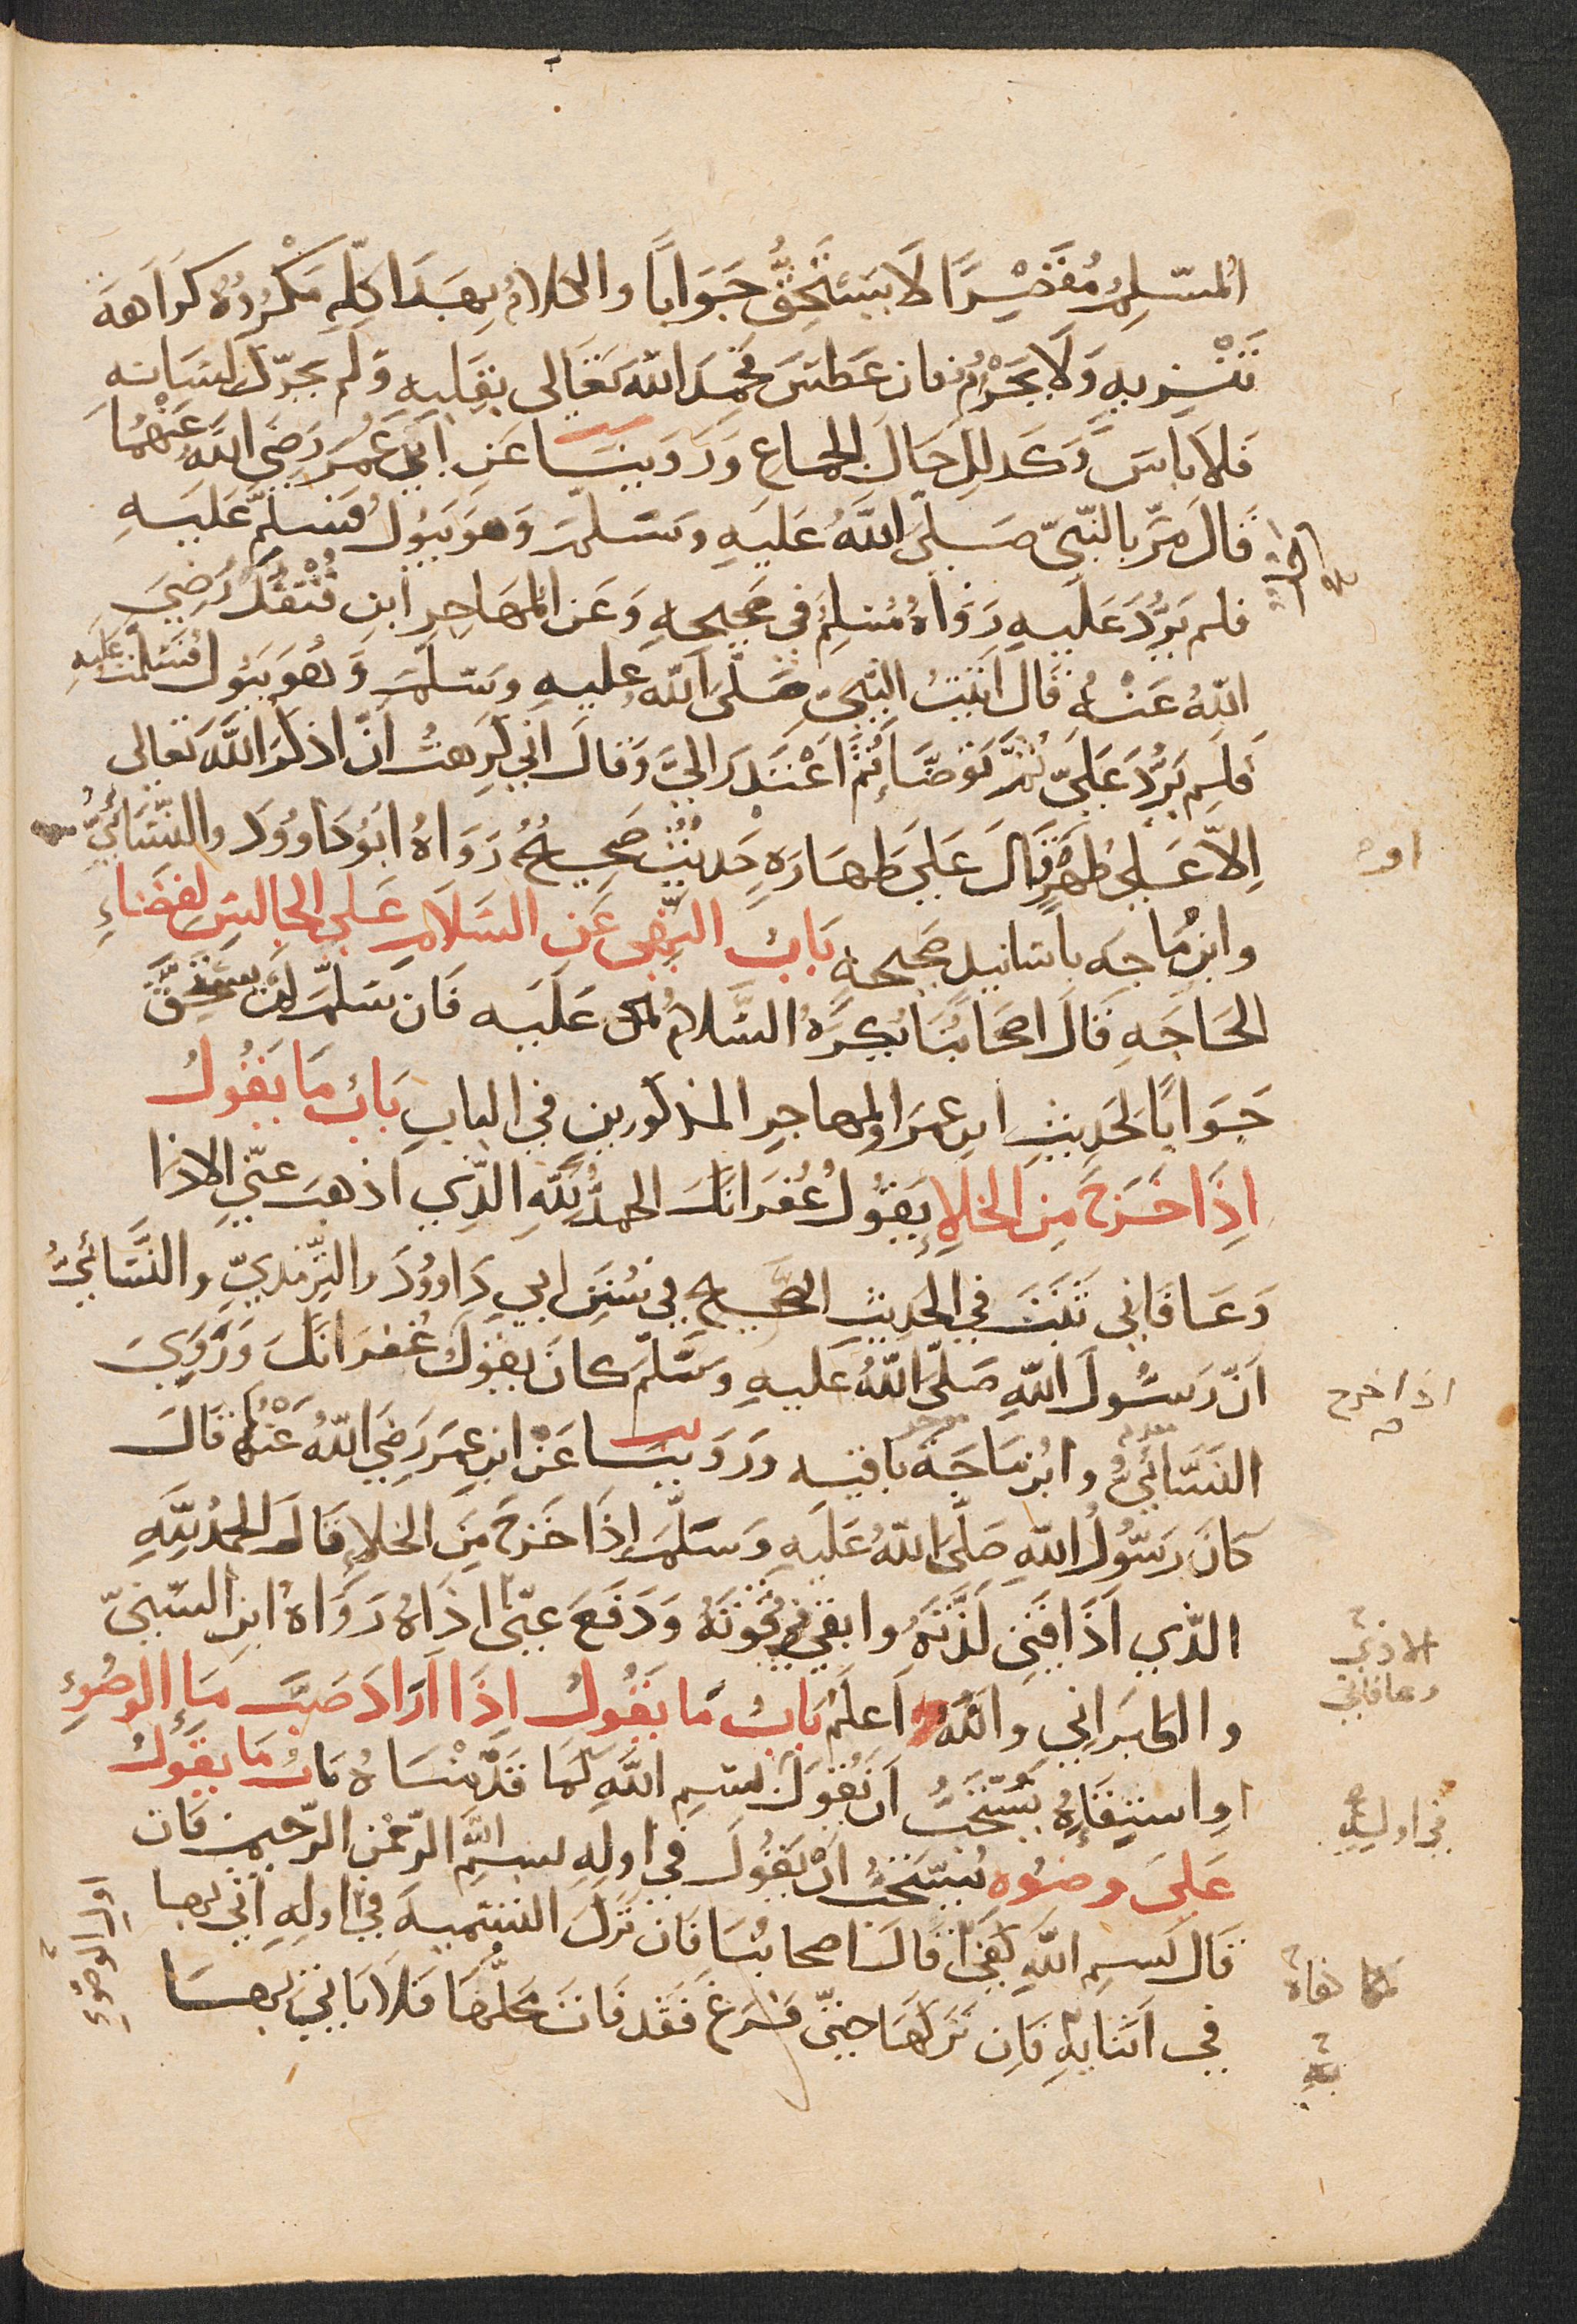 المُسَلِّمُ مُقَصِّرًا لَا يَسْتَحِقُّ جَوَابًا والكلامُ بِهَذَا كُلِّهِ مَكْرُوهٌ كَرَاهَةَ
تَنْزِيهٍ وَلَا يَحْرُمُ فان عَطَسَ فحَمِدَ اللهَ تَعَالى بقَلبِهِ وَلَم يحرّك لسَانه
فَلَا بَاسَ وَكَذلِكَ حَالَ الجماعِ وَرَوَيْنَا عَنِ ابن عُمَرَ رَضِيَ اللهُ عَنْهُمَا
قَالَ مَرَّ بالنّبيّ صَلَّى اللهُ عَلَيهِ وسَلّمَ وَهوَ يَبُولُ فسَلَّمَ عَلَيهِ
فلم يَرُدَّ عَلَيهِ رَوَاهُ مُسْلِم في صَحِيحِهِ وَعَن المُهَاجِرِ ابنِ قُنْفُذٍ رَضِيَ
اللهُ عَنْهُ قَالَ اتَيْتُ النَّبِيَّ صَلَّى اللهُ عليهِ وسَلّمَ وَهُوَ يَبُولُ فَسَلَّمْتُ عَلَيهِ
فَلَم يَرُدَّ عَلَيَّ ثُمَّ تَوَضَّأَ ثُمَّ اعْتَذَرَ اليَّ وَقَالَ اني كَرِهتُ انّ اذكُرَ اللَّهَ تعالى
اِلاّ عَلى طُهْرٍ او قَالَ عَلَى طَهَارَةٍ حَدِيْثٌ صَحِيحٌ رَوَاهُ ابُو دَاوُوَد والنّسَائيُّ
وابنُ مَاجَه باسَانيدٍ صَحِيحةٍ بَابُ النَّهْي عَنِ السَّلَامِ عَلى الجالِسِ لقضَاءِ
الحَاجَةِ قَالَ اصحَابُنَا يُكرَهُ السَّلامُ عَلَيه فَان سَلَّمَ لم يَستَحِقَّ
جَوَابًا لحَدِيثِ ابن عمَرَ والمهاجِرِ المذكورين في البابِ بَابُ مَا يَقُولُ
اِذَا خَرَجَ مِنَ الخلاءِ يَقُولُ غُفرَانَكَ الحمدُ للّهِ الذِي اذهبَ عنّي الاذا
وَعَافَاني ثَبَتَ في الحَدِيثِ الصَّحِيحِ في سُنَنِ ابي دَاوُودَ والتِّرمذيِّ والنَّسَائيُّ
اَنَّ رَسُولَ اللهِ صَلَّى اللهُ عَليهِ وسَلّمَ كانَ يقولُ غُفرَانَكَ وَرَوَى
النَّسَائيُّ وابنُ مَاجَة باقيه وَرَوَيْنَا عَنْ ابنِ عمَرَ رَضِيَ اللهُ عَنْهُمَا قَالَ
كَانَ رَسُولُ اللهِ صَلَّى اللهُ عَلَيهِ وَسَلَّمَ إذَا خَرَجَ مِنَ الخلاءِ قَالَ الحمدُ لِلَّهِ
الذّي اَذَاقَنِي لَذَّتَهُ وابقى فيَّ قُوَّتَهُ وَدَفَعَ عنّي اذَاهُ رَوَاهُ ابن السُّنيّ
والطبَرَاني واللهُ اَعلَمُ بَابُ مَا يَقُولُ اِذَا اَرَادَ صَبَّ مَاءِ الوضُوءِ
اوِ استِقَاءهُ يُسْتَحَبُّ اَن يَقُولَ بسمِ اللهِ كَمَا قَدَّمْنَاهُ بَابُ مَا يَقُولُ
عَلَى وضُوءِه يُستَحَبُّ انْ يَقُولَ في اولِهِ بسمِ اللهِ الرّحمنِ الرّحيم فَان
قَالَ بسمِ اللهِ كَفَى قَالَ اصحابُنَا فَان تَرَكَ التّسميةَ في اولِهِ اتى بها
في اَثنَايهِ فَاِن تَرَكَهَا حتّى فَرَغَ فَقَد فَاتَ مَحَلُّهَا فَلَا يَاتي بِهَا
او
اذا خرج
الاذى
وعافاني
في اوله
اول الوضوء